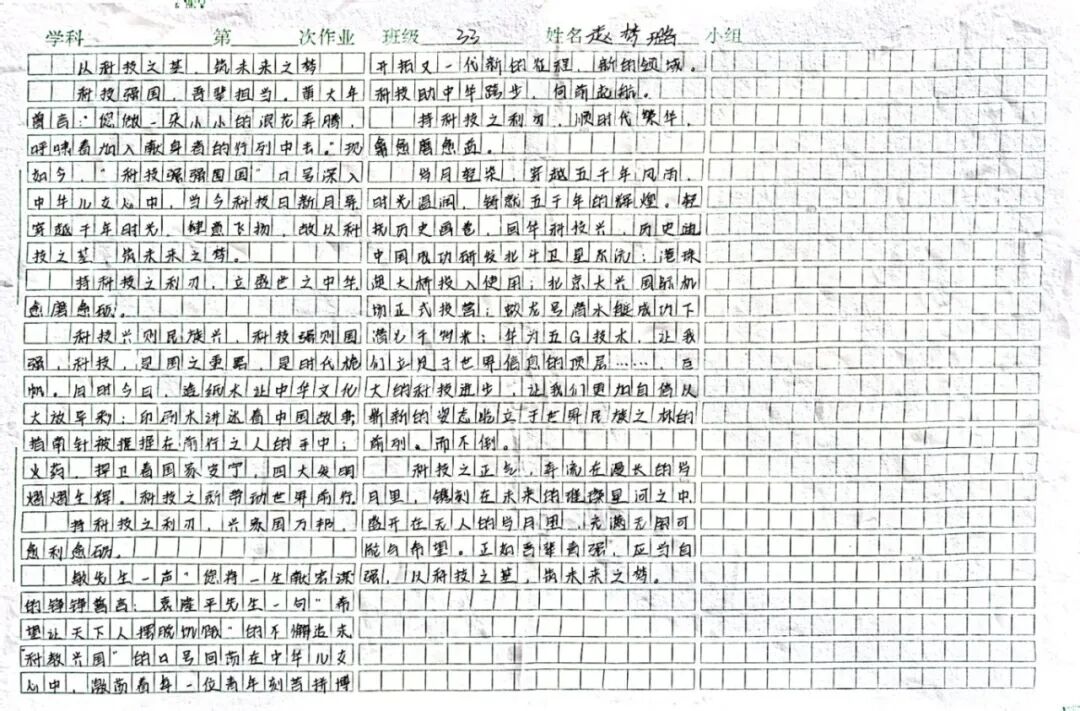 学科 第 次作业 班级 33 姓名 赵梦璐 小组
从科技之基，筑未来之梦
科技强国，吾辈担当。黄大年
曾言："您做一朵小小的浪花奔腾，
呼啸着加入献身者的行列中去。"现
如今，"科技强强国国"口号深入
中华儿女心中，当今科技日新月异
穿越千年时光，肆意飞扬，故从科
技之基，筑未来之梦。
持科技之利刃，立盛世之中华
愈磨愈砺。
科技兴则民族兴，科技强则国
强，科技，是国之重器，是时代桅
帆。旧时今日，造纸术让中华文化
大放异彩；印刷术讲述着中国故事
指南针被握握在前行之人的手中；
火药，捍卫着国家安宁，四大发明
熠熠生辉。科技之新带动世界前行
持科技之利刃，兴家国万邦，
愈利愈砺。
敏先生一声"您将一生献宏谋
的铮铮誓言；袁隆平先生一句"希
望让天下人摆脱饥饿"的不懈追求
"科教兴国"的口号回荡在中华儿女
心中，激荡着每一位青年刻苦持博
开拓又一代新的征程，新的领域。
科技助中华跨步，向前起航。
持科技之利刃，顺时代繁华，
愈愈磨愈面。
岁月轻染，穿越五千年风雨，
时光温润，铸就五千年的辉煌。轻
抚历史画卷，回华科技兴，历史迪
中国成功研发北斗卫星系统；港珠
澳大桥投入使用；北京大兴国际机
场正式投营；蛟龙号潜水艇成功下
潜七千物米；华为五G技术，让我
们立足于世界信息的顶层……，巨
大的科技进步，让我们更加自信从
崭新的姿态临立于世界民族之林的
前列。而不倒。
科技之正气，奔流在漫长的岁
月里，镌刻在未来的璀璨星河之中
盛开在无人的岁月里，充满无限可
能与希望。正如吾辈青强，应当自
强，从科技之基，筑未来之梦。